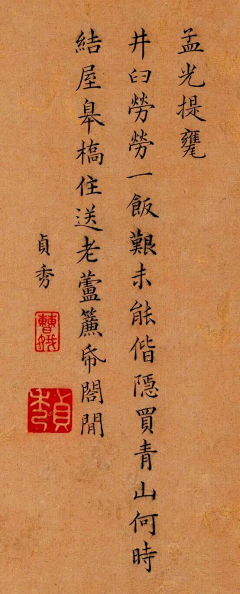 孟光提甕
井臼勞勞一飯艱未能偕隱買青山何時
結屋皋槗住送老蘆簾帋閤閒
貞秀
貞秀